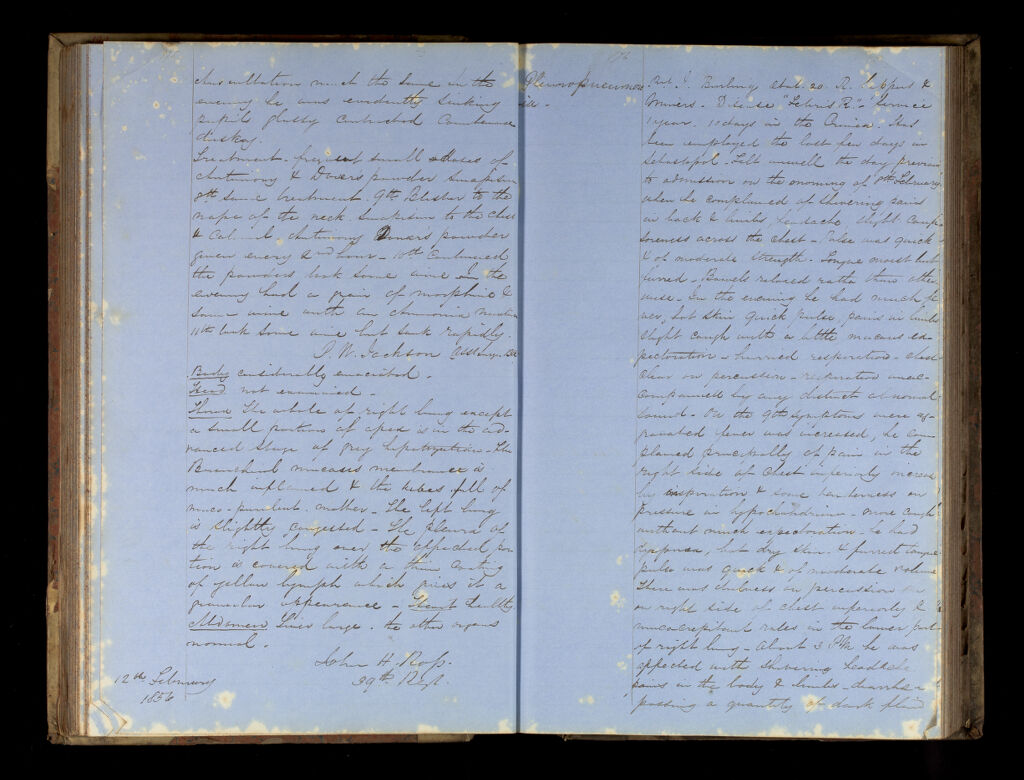 auscultation much the same in the
evening he was evidently sinking
pupils glassy contracted Countenance
dusky.
Treatment. frequent small doses of
Antimony & Dovers powder Sinapism
8th Same treatment. 9th Blister to the
nape of the neck Sinapism to the Chest
& Calomel Antimony Dovers powder
given every 2nd hour. 10th Continued
the powders took some wine in the
evening had a grain of morphine &
some wine with an Ammonia mixture
11th took some wine but sank rapidly.
W. Jackson Asst Surg.
Body considerably emaciated.
Head not examined.
Thorax The whole of right lung except
a small portion of apex is in the ad-
vanced stage of grey hepatization. The
Bronchial mucous membrane is
much inflamed & the tubes full of
muco-purulent matter. The left lung
is slightly congested. The pleura of
the right lung over the affected por
tion is covered with a thin coating
of yellow lymph which gives it a
granular appearance. Heart healthy
Abdomen Liver large. the other organs
normal.
John H. Ross.
39th Regt
12th February
1856
Pleuropneumon
ia.
Pvt. J. Burling Ætat. 20. R. Sappers &
Miners. Disease "Febris R." Service
1 year. 10 days in the Crimea. Had
been employed the last few days in
Sebastopol. Felt unwell the day previous
to admission on the morning of 8th February
when he complained of shivering pains
in back & limbs, headache, slight Cough
soreness across the Chest. Pulse was quick
& of moderate strength. Tongue moist but
furred. Bowels relaxed rather than other
wise. In the evening he had much fe
ver, hot skin quick pulse, pains in limbs
slight cough with a little mucous ex
pectoration & hurried respiration. chest
clear on percussion. respiration unac-
companied by any distinct abnormal
sound. On the 9th symptoms were ag-
gravated fever was increased, he com
plained principally of pain in the
right side of Chest inferiorly increased
by inspiration & some tenderness on
pressure in hypochondrium. more Cough
without much expectoration. he had
dyspnoea, hot dry skin & furred tongue
pulse was quick & of moderate volume
There was dulness on percussion
on right side of chest inferiorly &
mucocrepitant rales in the lower part
of right lung. About 3 P.M. he was
affected with shivering headache
pains in the body & limbs. diarrhoea
passing a quantity of dark fluid